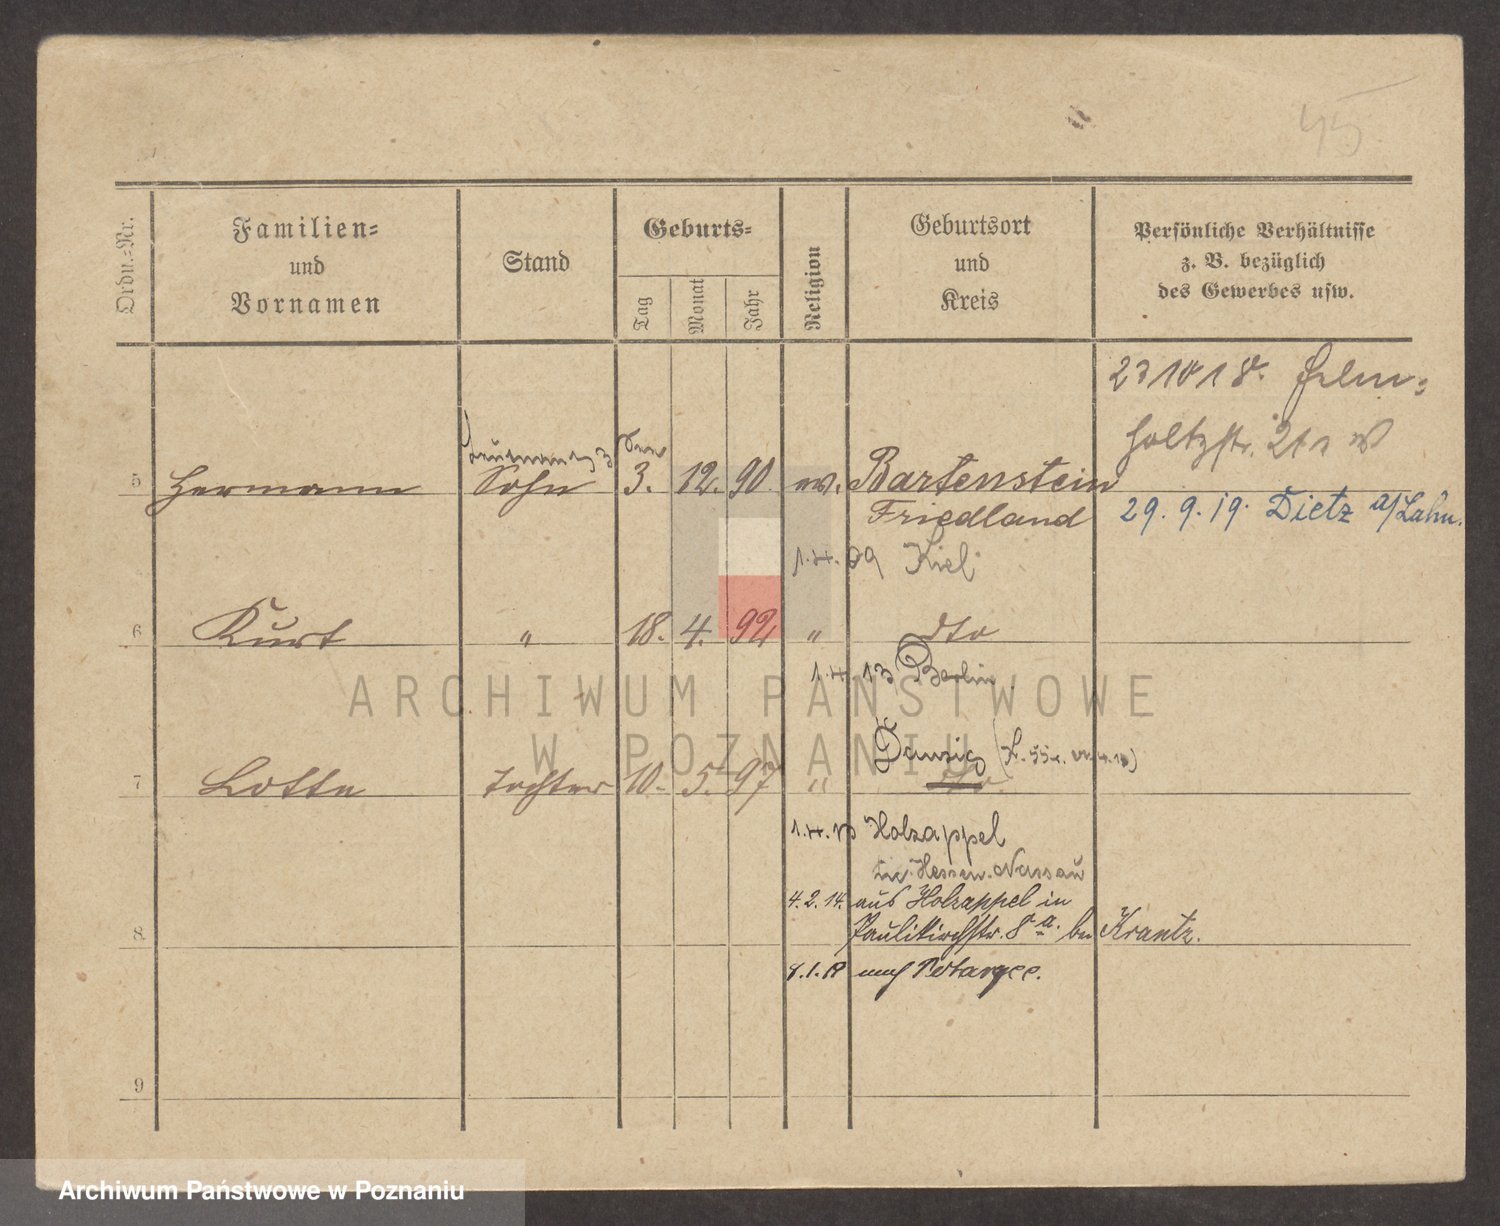 45
Ordn.-Nr.
Familien-
und
Vornamen
Stand
Geburts-
Tag
Monat
Jahr
Religion
Geburtsort
und
Kreis
Persönliche Verhältnisse
z. B. bezüglich
des Gewerbes usw.
23 10 18. Helm-
holtzstr.
5 Hermann Sohn 3. 12. 90 ev. Bartenstein
Friedland
29. 9. 19. Dietz a/Lahn.
1.4.09 Kiel
6 Kurt " 18. 4. 92 " dto
1.4.13 Berlin.
Danzig
7 Lotte Tochter 10. 5. 97 " dto.
Holzappel
Hessen-Nassau
4.2.14. aus Holzappel in
Paulikirchstr. 8 a. bei Krantz.
8
nach
9
ARCHIWUM PAŃSTWOWE
W POZNANIU
Archiwum Państwowe w Poznaniu